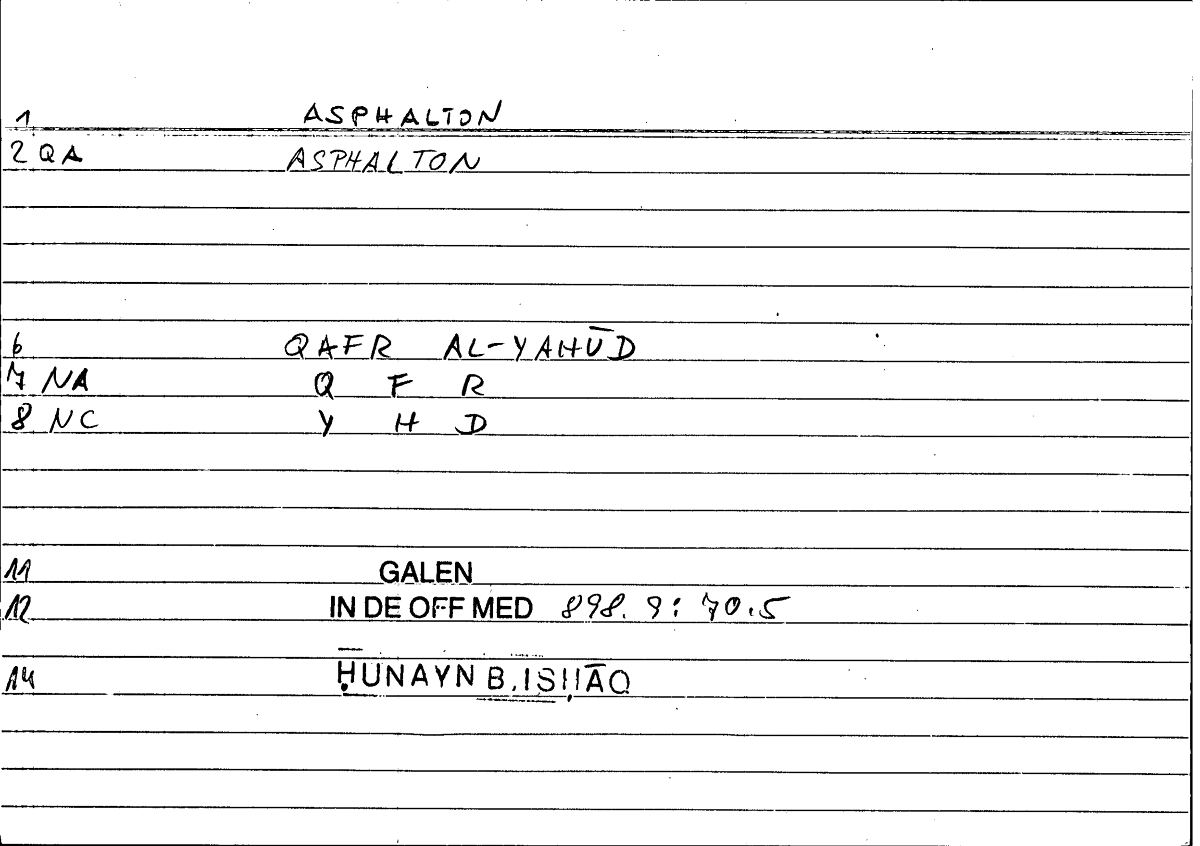 1 ASPHALTON
2 QA ASPHALTON
6 QAFR AL-YAHŪD
7 NA Q F R
8 NC Y H D
11 GALEN
12 IN DE OFF MED 898. 9: 70.5
14 ḤUNAYN B. ISḤĀQ